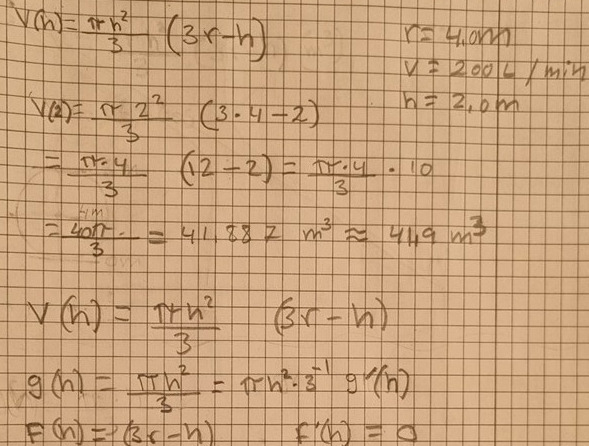 V(h) = πh²/3 (3r-h)
r = 4,0m
V = 200 L / min
h = 2,0m
V(2) = π 2²/3 (3·4-2)
= π·4/3 (12-2) = π·4/3 · 10
= 40π/3 = 41,887 m³ ≈ 41,9 m³
V(h) = πh²/3 (3r-h)
g(h) = πh²/3 = πh²·3⁻¹ g'(h)
F(h) = (3r-h) F'(h) = 0